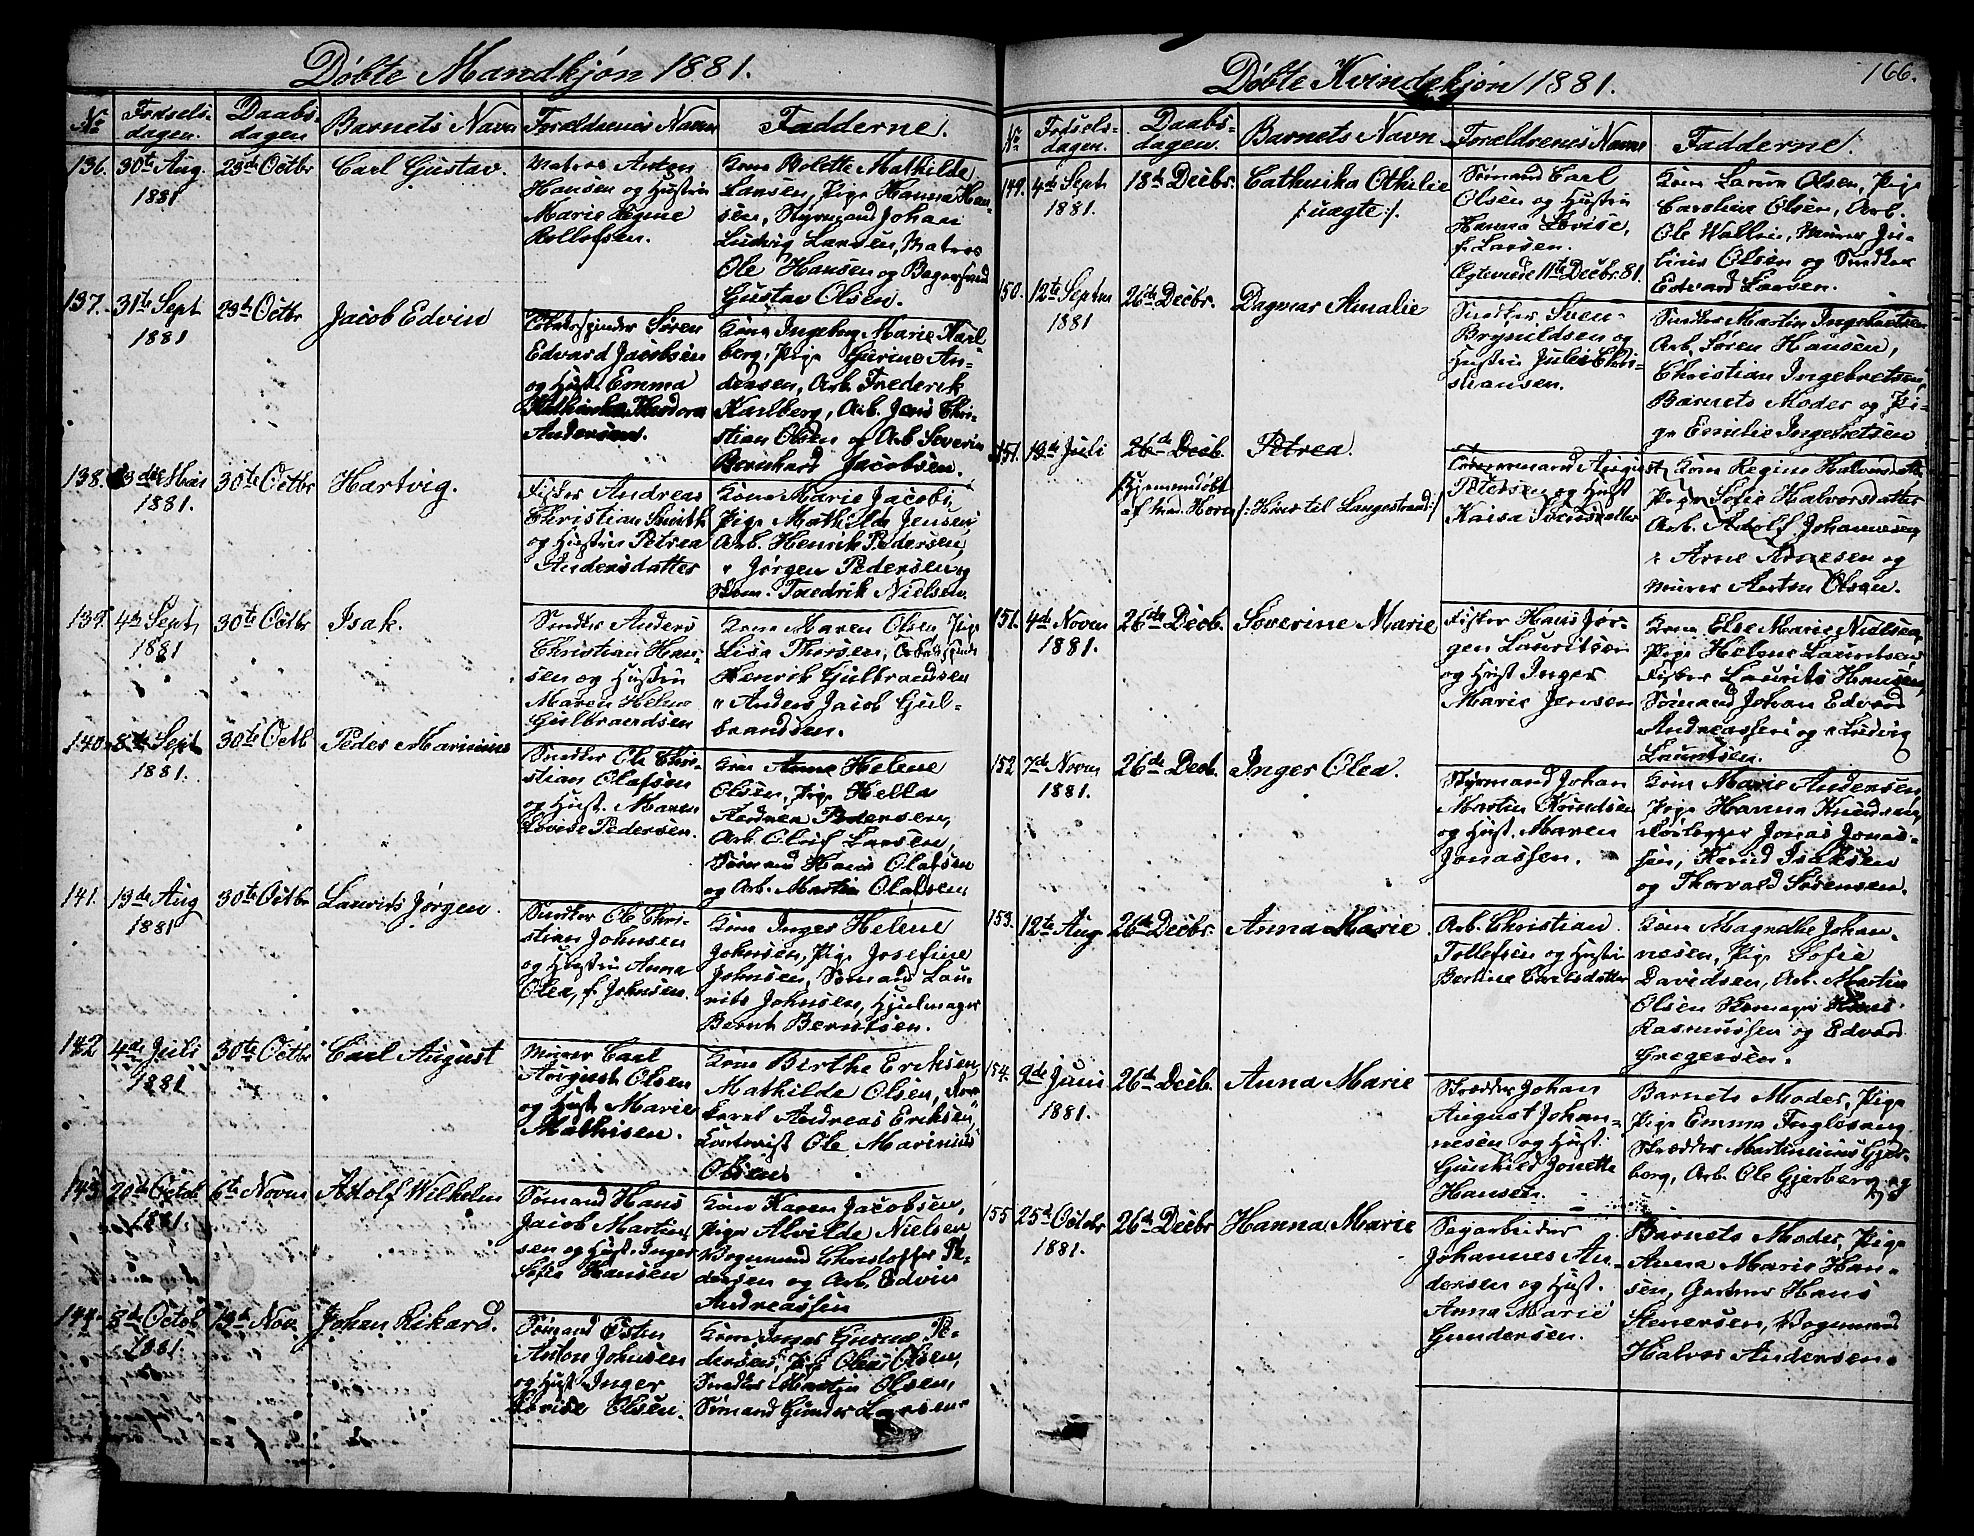 Døbte Mandkjøn 1881.
No
Fødsels-
dagen.
Daabs-
dagen
Barnets Navn
Forældrenes Navne
Fadderne.
136.
30te Aug.
1881
23de Octbr
Carl Gustav.
Matros Anton
Hansen og Hustru
Marie Regine
Rollofsen.
Kone Bolette Mathilde
Larsen, Pige Hanna Han-
sen, Styrmand Johan
Ludvig Larsen, Matros
Ole Hansen og Bagersvend
Gustav Olsen.
137.
31te Sept
1881
23de Octbr
Jacob Edvin
Søren
Edvard Jacobsen
og Hust. Emma
Kathinka Theodora
Andersen.
Kone Ingeborg Marie Karl-
berg, Pige Gurine An-
dersen, Arb. Frederik
Karlberg, Arb. Jens Chri-
stian Olsen og Arb Severin
Bernhard Jacobsen.
138.
1881.
30te Octbr
Hartvig.
Fisker Andreas
Christian Smith
og Hustru Petrea
Andersdatter
Kone Marie Jacobs,
Pige Mathilde Jensen,
Arb. Henrik Pedersen,
" Jørgen Pedersen og
Fredrik Nielsen
139.
4de Sept,
1881
30te Octbr
Isak.
Snedker Anders
Christian Han-
sen og Hustru
Maren Helene
Gulbrandsen
Kone Maren Olsen, Pige
Lisa Thorsen,
Henrik Gulbrandsen
" Anders Jacob Gul-
brandsen.
140.
8de Sept
1881.
30te Octb
Peder Marinius
Snedker Ole Chri-
stian Olafsen
og Hust. Maren
Lovise Pedersen.
Kone Anne Helene
Olsen, Pige Hella
Andrea Pedersen,
Arb. Oluf Larsen,
Sømand Hans Olafsen
og Arb. Martin Olafsen
141.
13de Aug
1881
30te Octbr
Laurits Jørgen.
Snedker Ole Chri-
stian Johnsen
og Hustru Anna
Olea, f. Johnsen.
Kone Inger Helene
Johnsen, Pige Josefine
Johnsen, Sømand Lau-
rits Johnsen, Hjulmager
Bernt Berntsen.
142
4de Juli
1881
30te Octbr
Carl August
Murer Carl
August Olsen
og Hust. Marie
Mathisen.
Kone Birthe Eriksen,
Mathilde Olsen,
Andreas Eriksen,
Ole Marinius
Olsen.
143.
20de Octob
1881.
6te Novbr
Adolf Wilhelm
Sømand Hans
Jacob Martin-
sen og Hust. Inger
Sofie Hansen
Kone Karen Jacobsen,
Pige Alvilde Nielsen
Vognmand Christoffer Pe-
dersen og Arb. Edvin
Andreassen
144.
8de Octob
1881.
13de Nov.
Johan Rikard.
Sømand Østen
Anton Johnsen
og Hust Inger
Lovise Olsen.
Kone Inger Gurine Pe-
dersen, Pige Olea Olsen,
Snedker Martin Olsen,
Sømand Gunder Larsen.
Døbte Kvindekjøn 1881.
166.
No
Fødsels-
dagen.
Daabs-
dagen.
Barnets Navn
Forældrenes Navne
Fadderne.
149.
4de Sept,
1881.
18de Decbr.
Cathinka Othilie
/:uægte:/.
Sømand Carl
Olsen og Hustru
Hanna Lovise,
f. Larsen.
Ægteviede 11te Decbr. 81.
Kone Laura Olsen, Pige
Caroline Olsen, Arb.
Ole Wallin, Murer Ju-
lius Olsen og Snedker
Edvard Larsen.
150.
12te Septbr
1881
26de Decbr.
Dagmar Amalie
Snedker Sven
Brynildsen og
Hustru Julie Chri-
stiansen.
Snedker Martin Ingebretsen
Arb. Søren Hansen,
Christian Ingebretsen,
Barnets Moder og Pi-
ge Emilie Ingebretsen
151.
13de Juli
26de Decb.
Hjemmedøbt
Petrea.
/:Hører til Langestrand:/
August
Petersen og Hust
Kaisa Svensdatter
Kone Regine Halvorsdatter,
Pige Sofie Halvorsdatter
Arb. Adolf Johannesen,
" Arne Arnesen og
Murer Anton Olsen.
151.
4de Novbr
1881.
26de Decb.
Severine Marie
Fisker Hans Jør-
gen Lauritsen
og Hust Inger
Marie Jensen
Kone Else Marie Nielsen,
Pige Helene Lauritsen,
Fisker Laurits Hansen,
Sømand Johan Edvard
Andreassen og " Ludvig
Lauritsen.
152
7de Novbr
1881.
26de Decb.
Inger Olea.
Styrmand Johan
Martin Knudsen
og Hust. Maren
Jonassen.
Kone Marie Andersen,
Pige Hanna Knudsen,
Jonas Jonas-
sen, Isaksen
og Thorvald Sørensen.
153.
12te Aug
26de Decbr.
Anna Marie
Arb. Christian
Tollefsen og Hustru
Bertine Engelsdatter
Kone Magnathe Johan-
nesen, Pige Sofie
Davidsen, Arb. Martin
Olsen Skomager Hans
Rasmussen og Edvard
Gregersen.
154.
9de Juni
1881.
26de Decb.
Anna Marie
Skrædder Johan
August Johan-
nesen og Hust.
Gunhild Jonette
Hansen.
Barnets Moder, Pige
Pige Emma Fuglesang
Skrædder Martinius Gjer-
berg, Arb. Ole Gjerberg og
155
25de Octobr
1881.
26de Decbr
Hanna Marie
Sagarbeider
Johannes An-
dersen og Hust.
Anna Marie
Gundersen.
Barnets Moder, Pige
Anna Marie Han-
sen, Gartner Hans
Stenersen, Vognmand
Halvor Andersen.